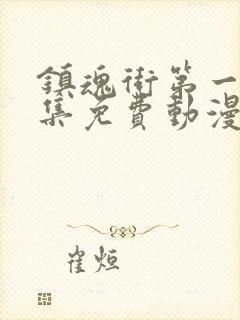 鎮魂街第一
集免費動漫
崔烜